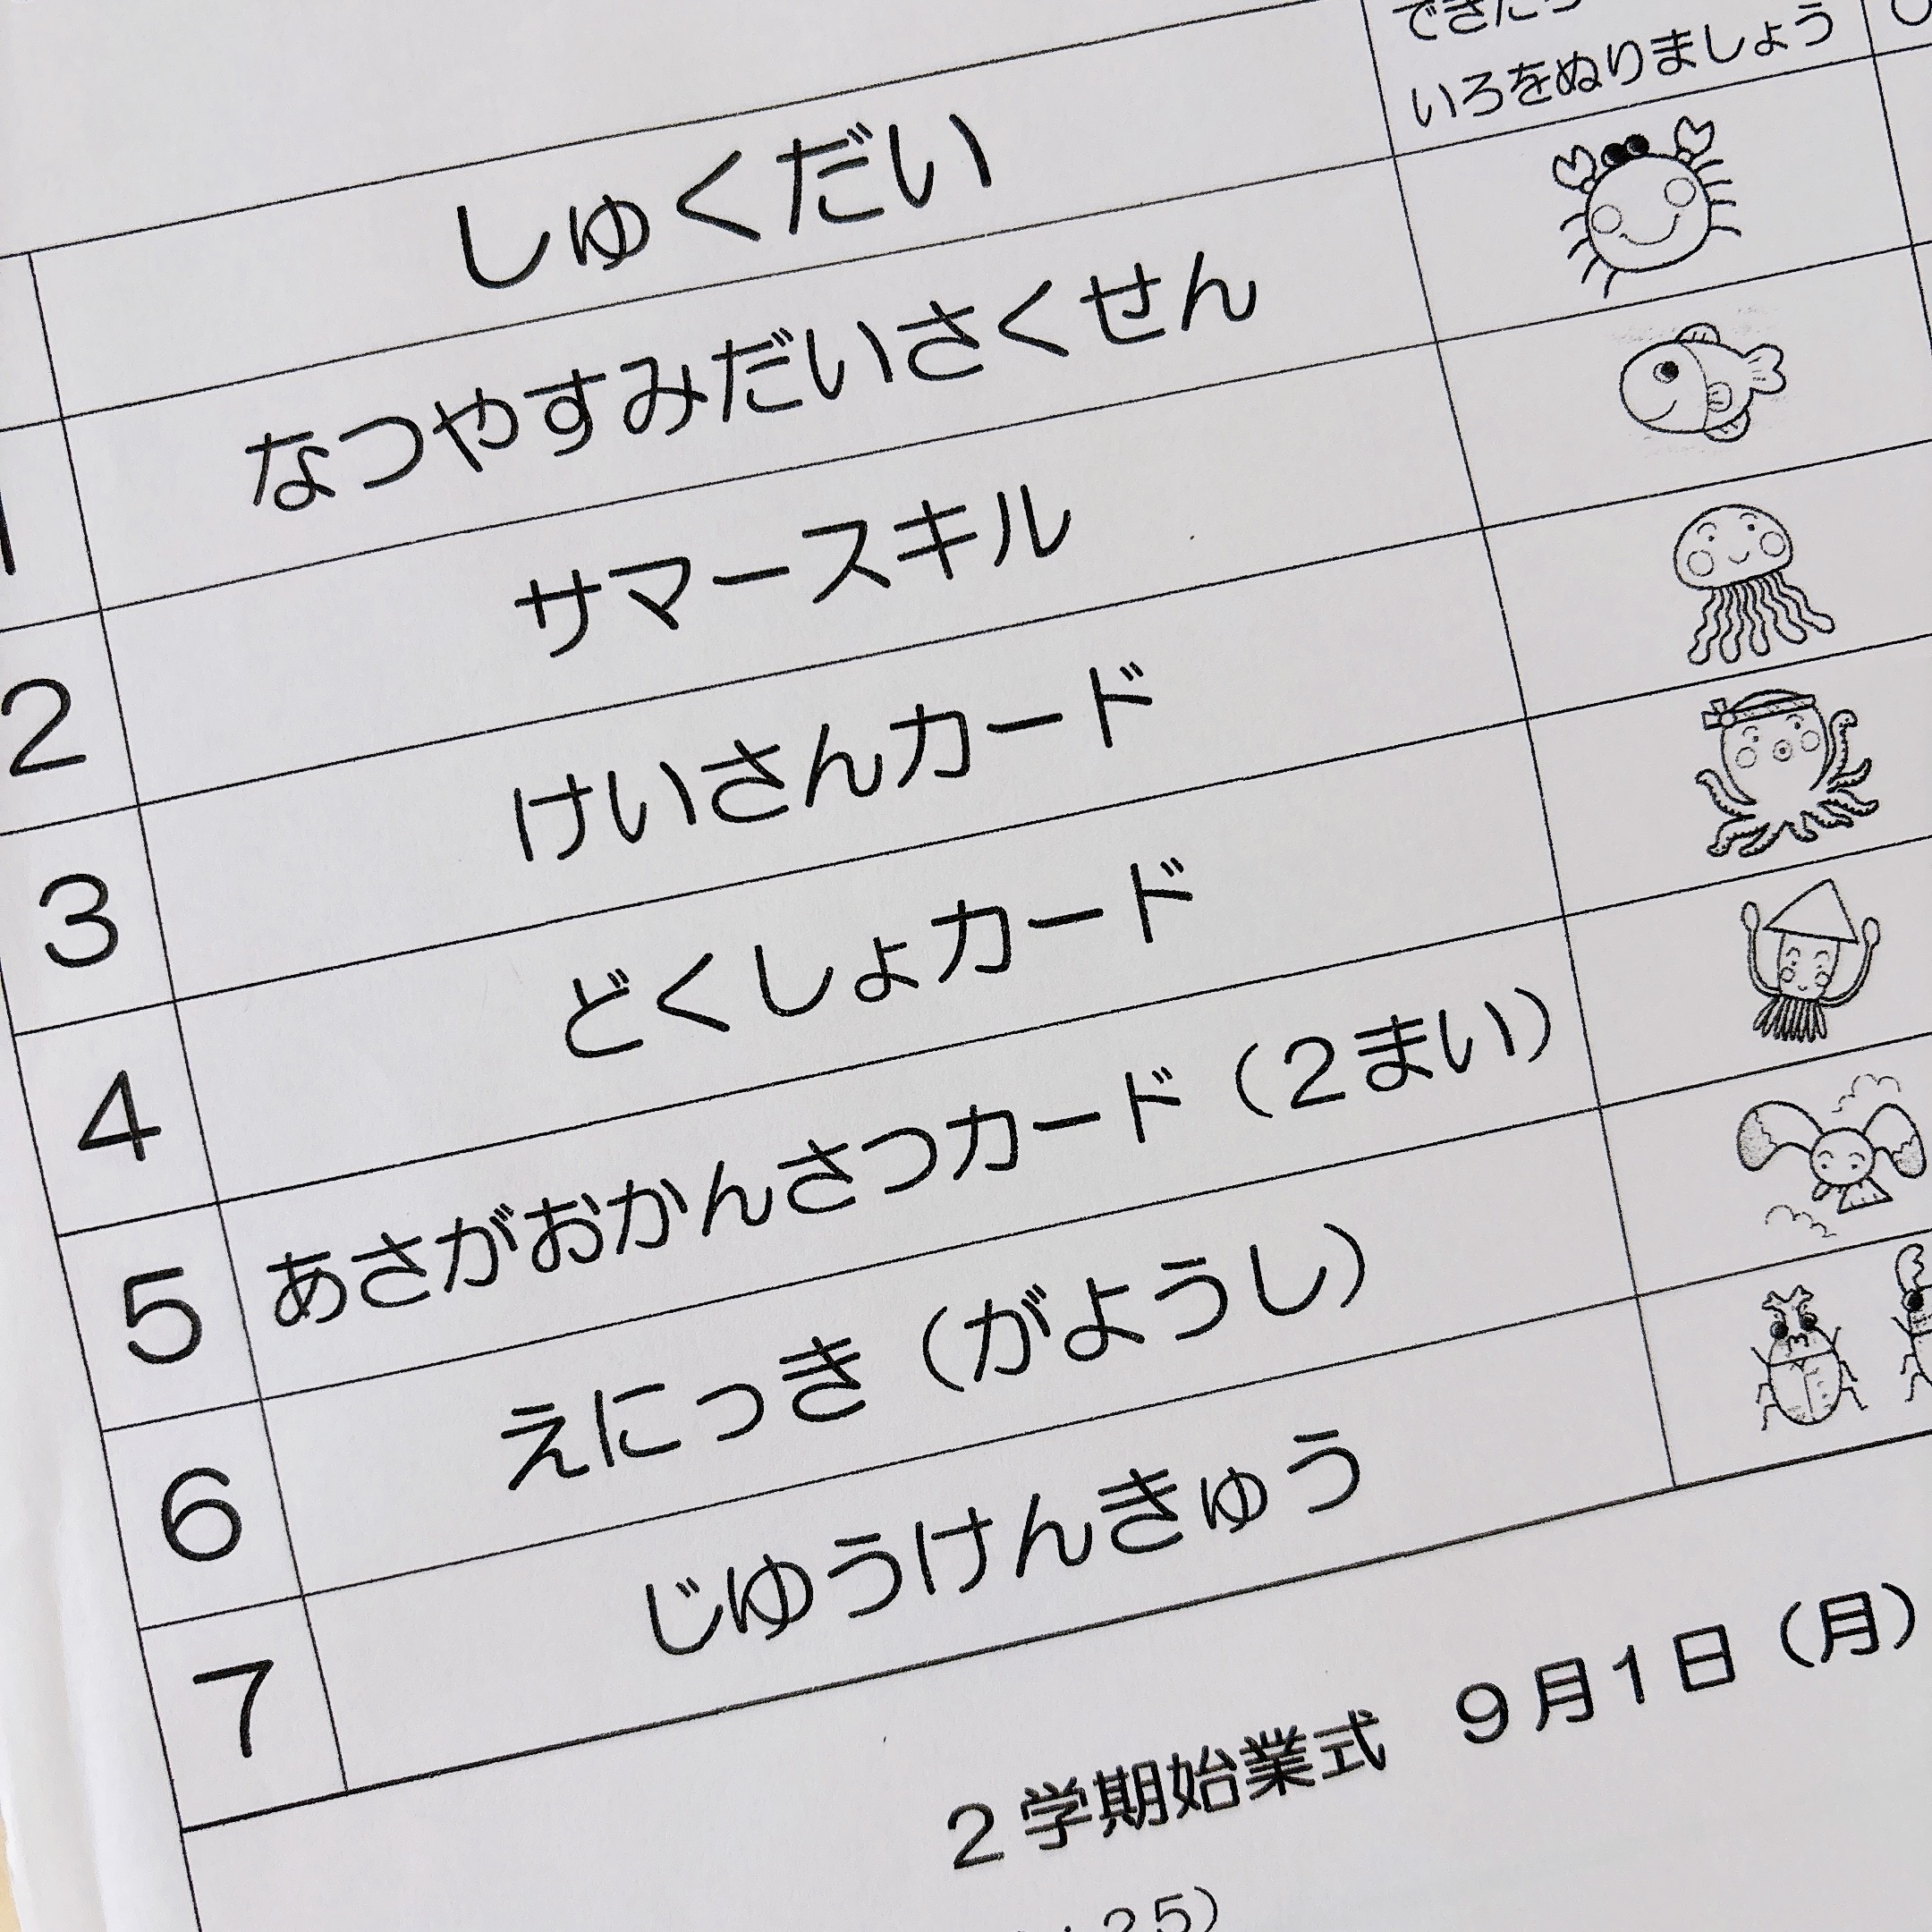 しゅくだい
できたら
いろをぬりましょう
1 なつやすみだいさくせん
2 サマースキル
3 けいさんカード
4 どくしょカード
5 あさがおかんさつカード（2まい）
6 えにっき（がようし）
7 じゆうけんきゅう
2学期始業式　9月1日（月）
25）